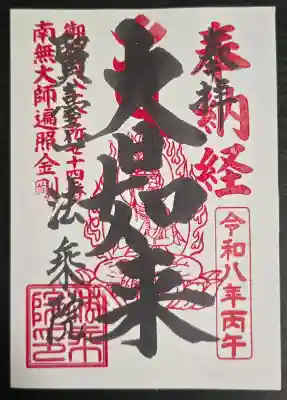 奉納経
奉拝
令和八年丙午
大日如来
七十四番
南無大師遍照金剛
賢臺山 法乗院